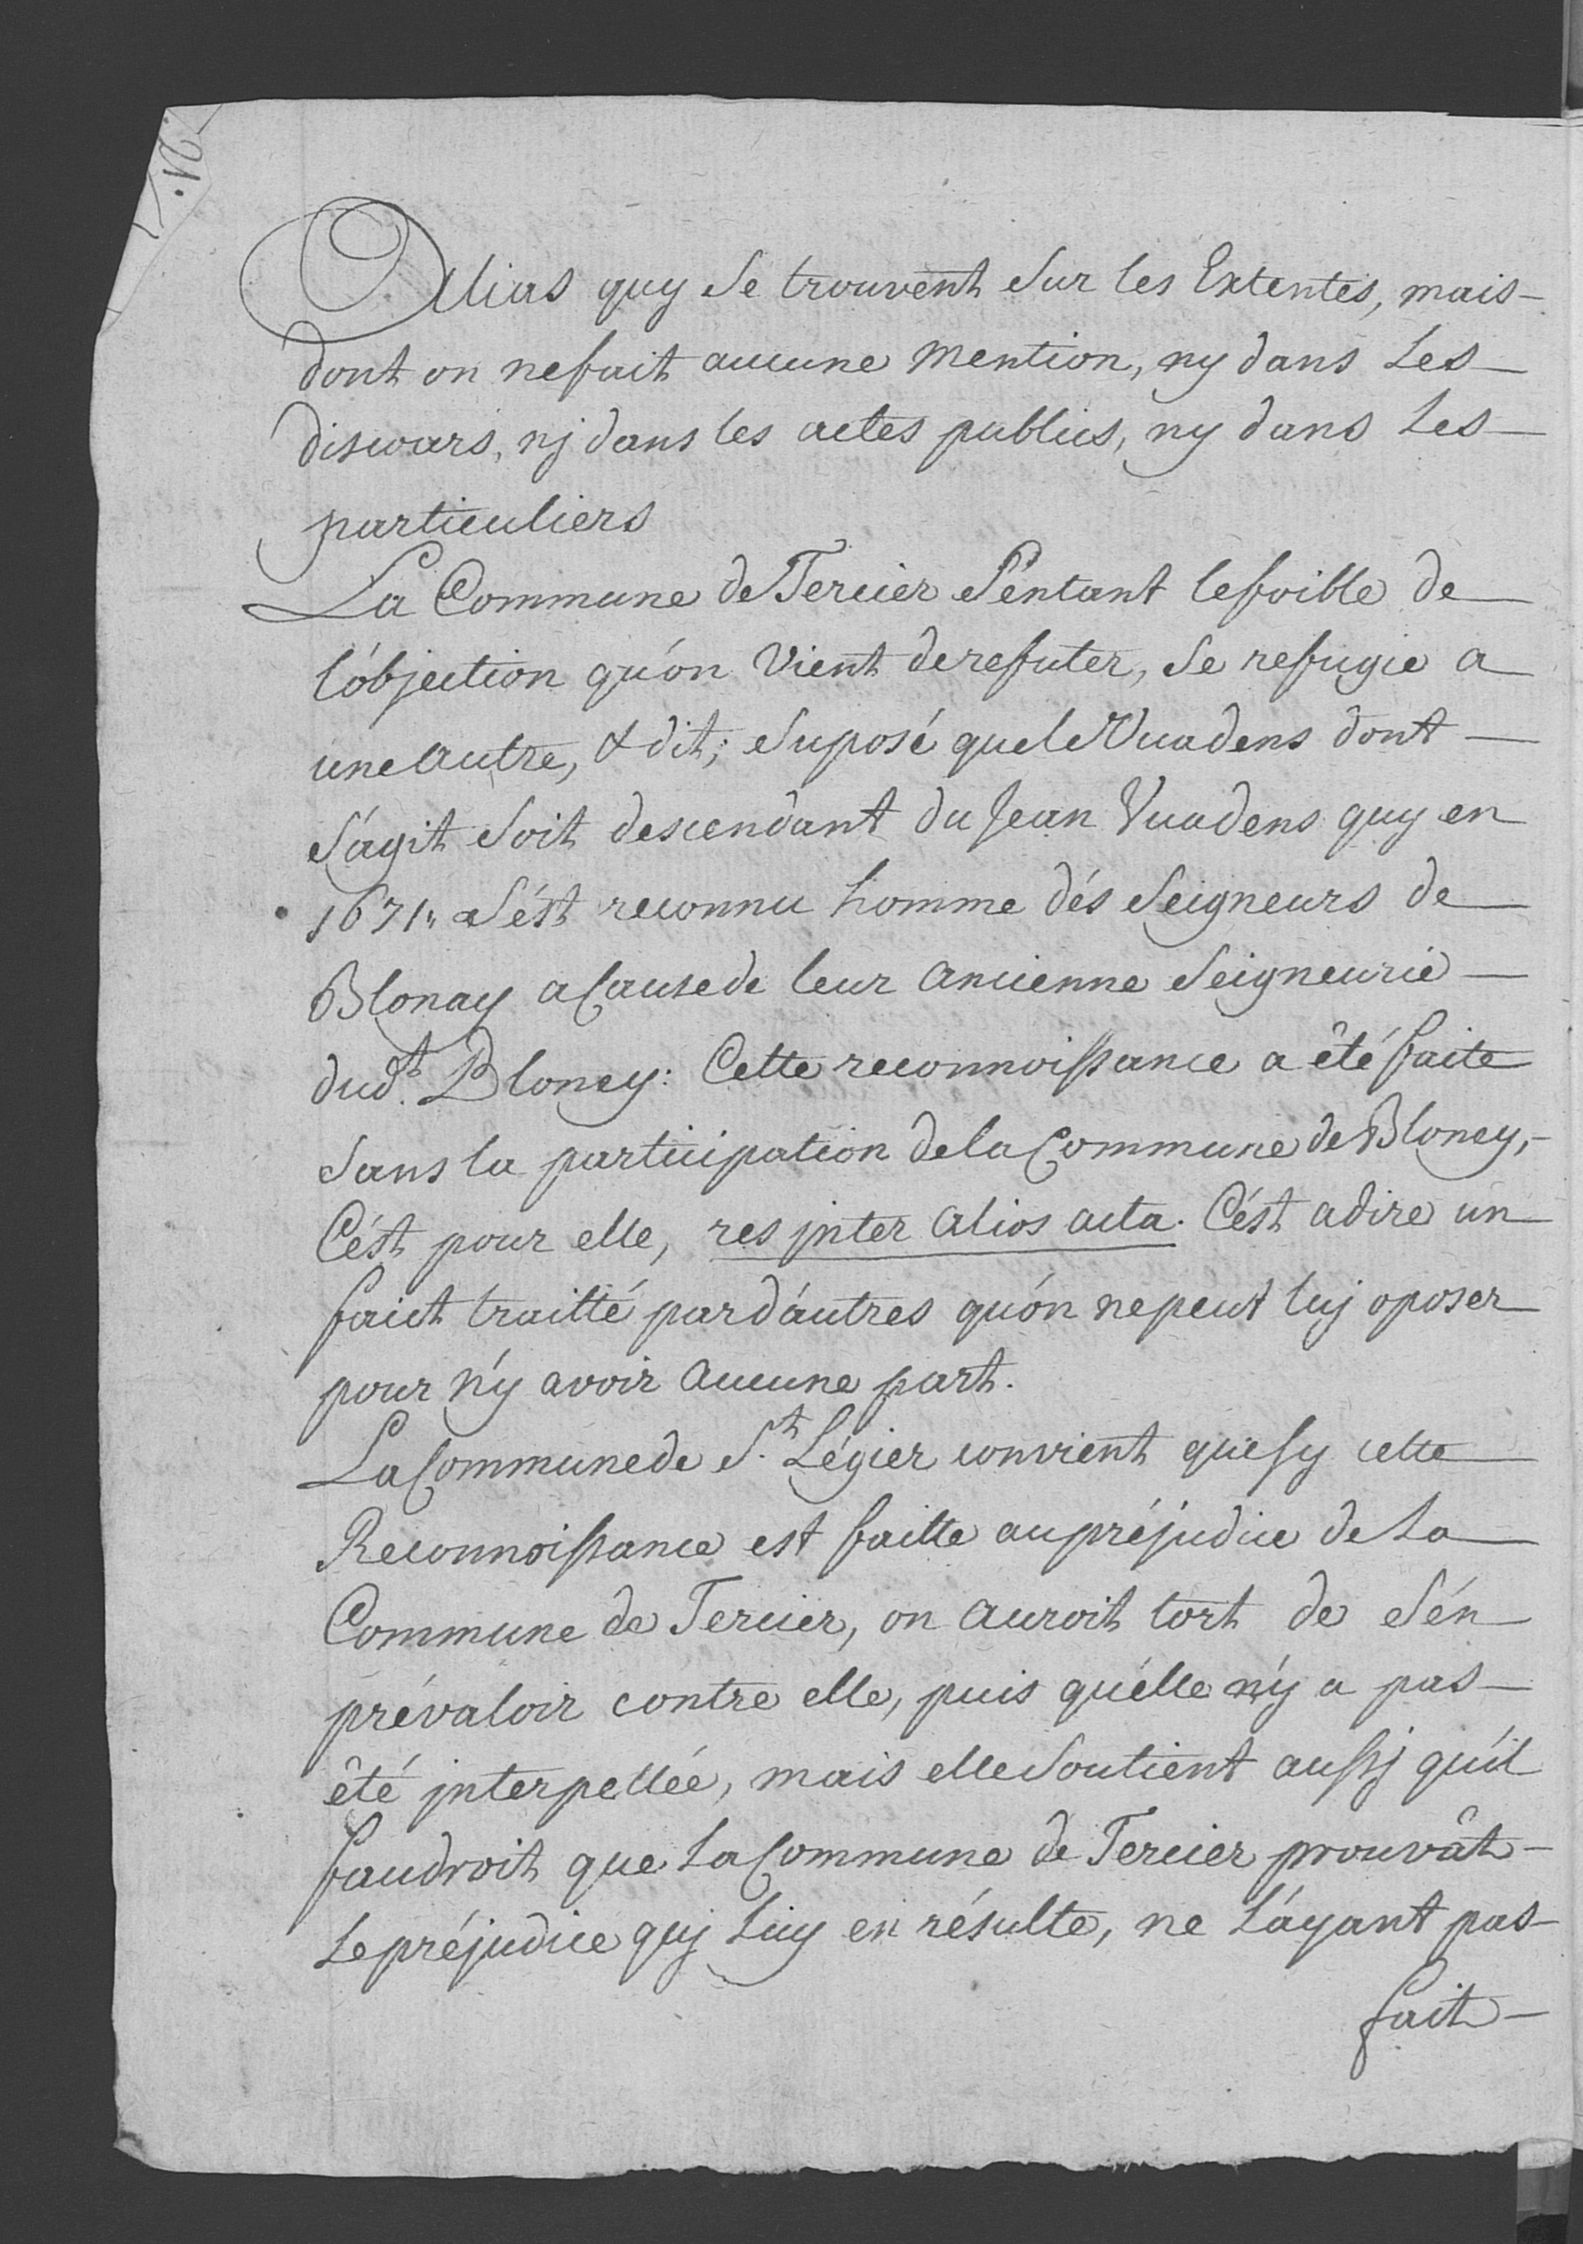 Alias quy se trouvent sur les Extentes, mais
dont on nefait aucune mention, ny dans les
discours, nj dans les actes publics, ny dans les
particuliers
La Commune de Tercier Sentant lefoible de
l'objection qu'on vient derefuter, se refugie a
une autre, & dit; suposé quele Vuadens dont
s'agit soit descendant du Jean Vuadens quy en
1671 s'ést reconnu homme dés Seigneurs de
Blonay acausede leur ancienne Seigneurie
dudt. Bloney: Cette reconnoissance a êté faite
sans la participation dela Commune de Bloney,
C'ést pour elle, res jnter alios acta. C'ést adire un
faict traitté pard'autres qu'on nepeut luj oposer
pour n'y avoir aucune part.
La Commune de St. Légier convient quesy cette
Reconnoissance est faitte aupréjudice de la
Commune de Tercier, on auroit tort de s'én
prévaloir contre elle, puis qu'élle n'y a pas
êté jnterpellée, mais elle soutient aussj qu'il
faudroit que la Commune de Tercier prouvât
le préjudice quj luy en résulte, ne l'áyant pas
fait